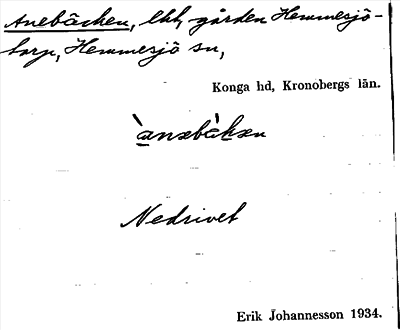 Anebäcken, lht, gården Hemmesjö-
torp, Hemmesjö sn,
Konga hd, Kronobergs län.
Nedrivet
Erik Johannesson 1934.